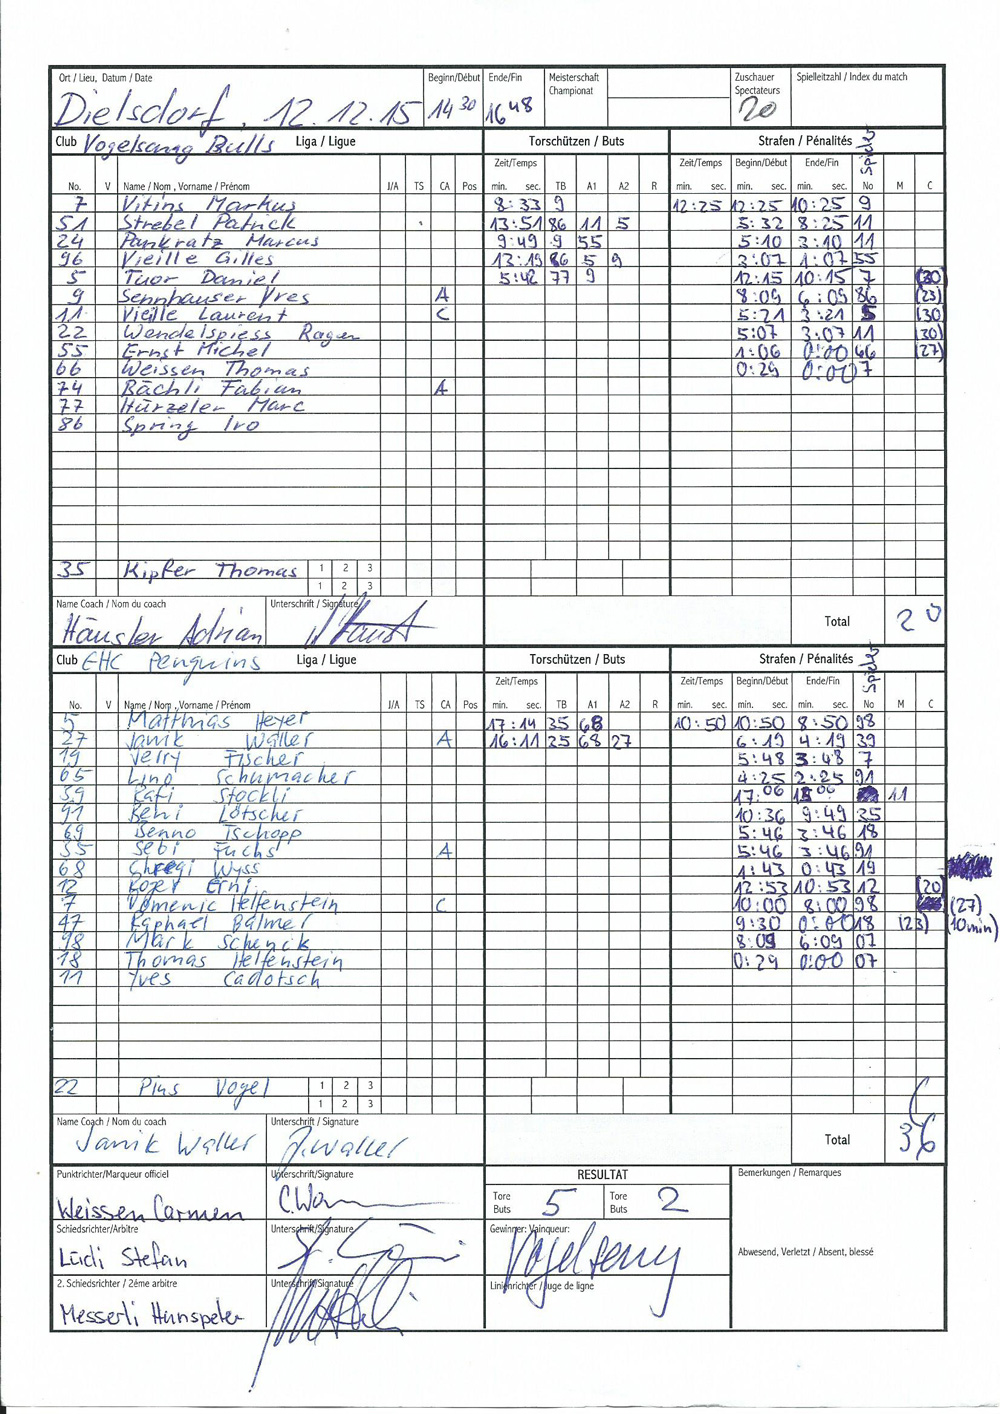 Ort / Lieu, Datum / Date Beginn/Début Ende/Fin Meisterschaft Championat Zuschauer Spectateurs Spielleitzahl / Index du match
Dielsdorf, 12.12.15 14 30 16 48 20
Club Vogelsang Bulls Liga / Ligue Torschützen / Buts Strafen / Pénalités
Zeit/Temps Zeit/Temps Beginn/Début Ende/Fin Spieler
No. V Name / Nom , Vorname / Prénom J/A TS CA Pos min. sec. TB A1 A2 R min. sec. min. sec. min. sec. No M C
7 Vitins Markus 8:33 9 12:25 12:25 10:25 9
51 Strebel Patrick 13:51 86 11 5 5:32 8:25 11
24 Pankratz Marcus 9:49 9 55 5:10 3:10 11
96 Vieille Gilles 13:19 86 5 9 3:07 1:07 55
5 Tuor Daniel 5:42 77 9 12:15 10:15 7 (30)
9 Sennhauser Yres A 8:09 6:09 86 (23)
11 Vieille Laurent C 5:21 3:21 5 (30)
22 Wendelspiess Roger 5:07 3:07 11 (30)
55 Ernst Michel 1:06 0:00 66 (27)
66 Weissen Thomas 0:29 0:00 7
74 Bächli Fabian A
77 Hürzeler Marc
86 Spring Ivo
35 Kipfer Thomas 1 2 3
1 2 3
Name Coach / Nom du coach Unterschrift / Signature
Häusler Adrian Total 20
Club EHC Penguins Liga / Ligue Torschützen / Buts Strafen / Pénalités
Zeit/Temps Zeit/Temps Beginn/Début Ende/Fin Spieler
No. V Name / Nom ,Vorname / Prénom J/A TS CA Pos min. sec. TB A1 A2 R min. sec. min. sec. min. sec. No M C
5 Matthias Heyer 17:14 35 68 10:50 10:50 8:50 98
27 Janik Waller A 16:11 25 68 27 6:19 4:19 39
19 Jerry Fischer 5:48 3:48 7
65 Lino Schumacher 4:25 2:25 91
39 Rafi Stöckli 17:06 06 11
91 Beni Lötscher 10:36 9:49 35
69 Benno Tschopp 5:46 3:46 18
35 Sebi Fuchs A 5:46 3:46 91
68 Gregi Wyss 1:43 0:43 19
12 Roger Erni 12:53 10:53 12 (20)
7 Domenic Helfenstein C 10:00 8:00 98 (27)
47 Raphael Balmer 9:30 0:00 18 (23) (10min)
98 Mark Schenck 8:09 6:09 07
18 Thomas Helfenstein 0:29 0:00 07
11 Yves Cadotsch
22 Pius Vogel 1 2 3
1 2 3
Name Coach / Nom du coach Unterschrift / Signature
Janik Waller J.Waller Total 36
Punktrichter/Marqueur officiel Unterschrift/Signature RESULTAT Bemerkungen / Remarques
Weissen Carmen Tore Buts 5 Tore Buts 2
Schiedsrichter/Arbitre Unterschrift/Signature Gewinner: Vainqueur:
Lüdi Stefan Abwesend, Verletzt / Absent, blessé
2. Schiedsrichter / 2éme arbitre Unterschrift/Signature Linienrichter / Juge de ligne
Messerli Hanspeter